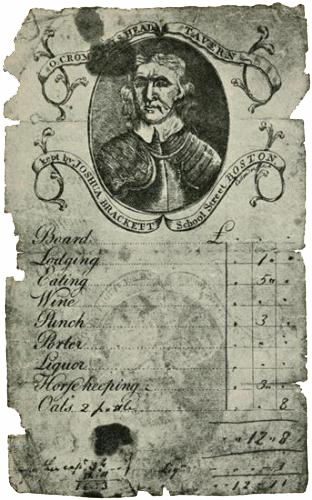 O. CROM HEAD TAVERN
kept by JOSHUA BRACKETT School Street BOSTON
Board £
Lodging 1
Eating 5
Wine
Punch 3
Porter
Liquor
Horse keeping 3
Oats 2 8
12 8
3
12 11